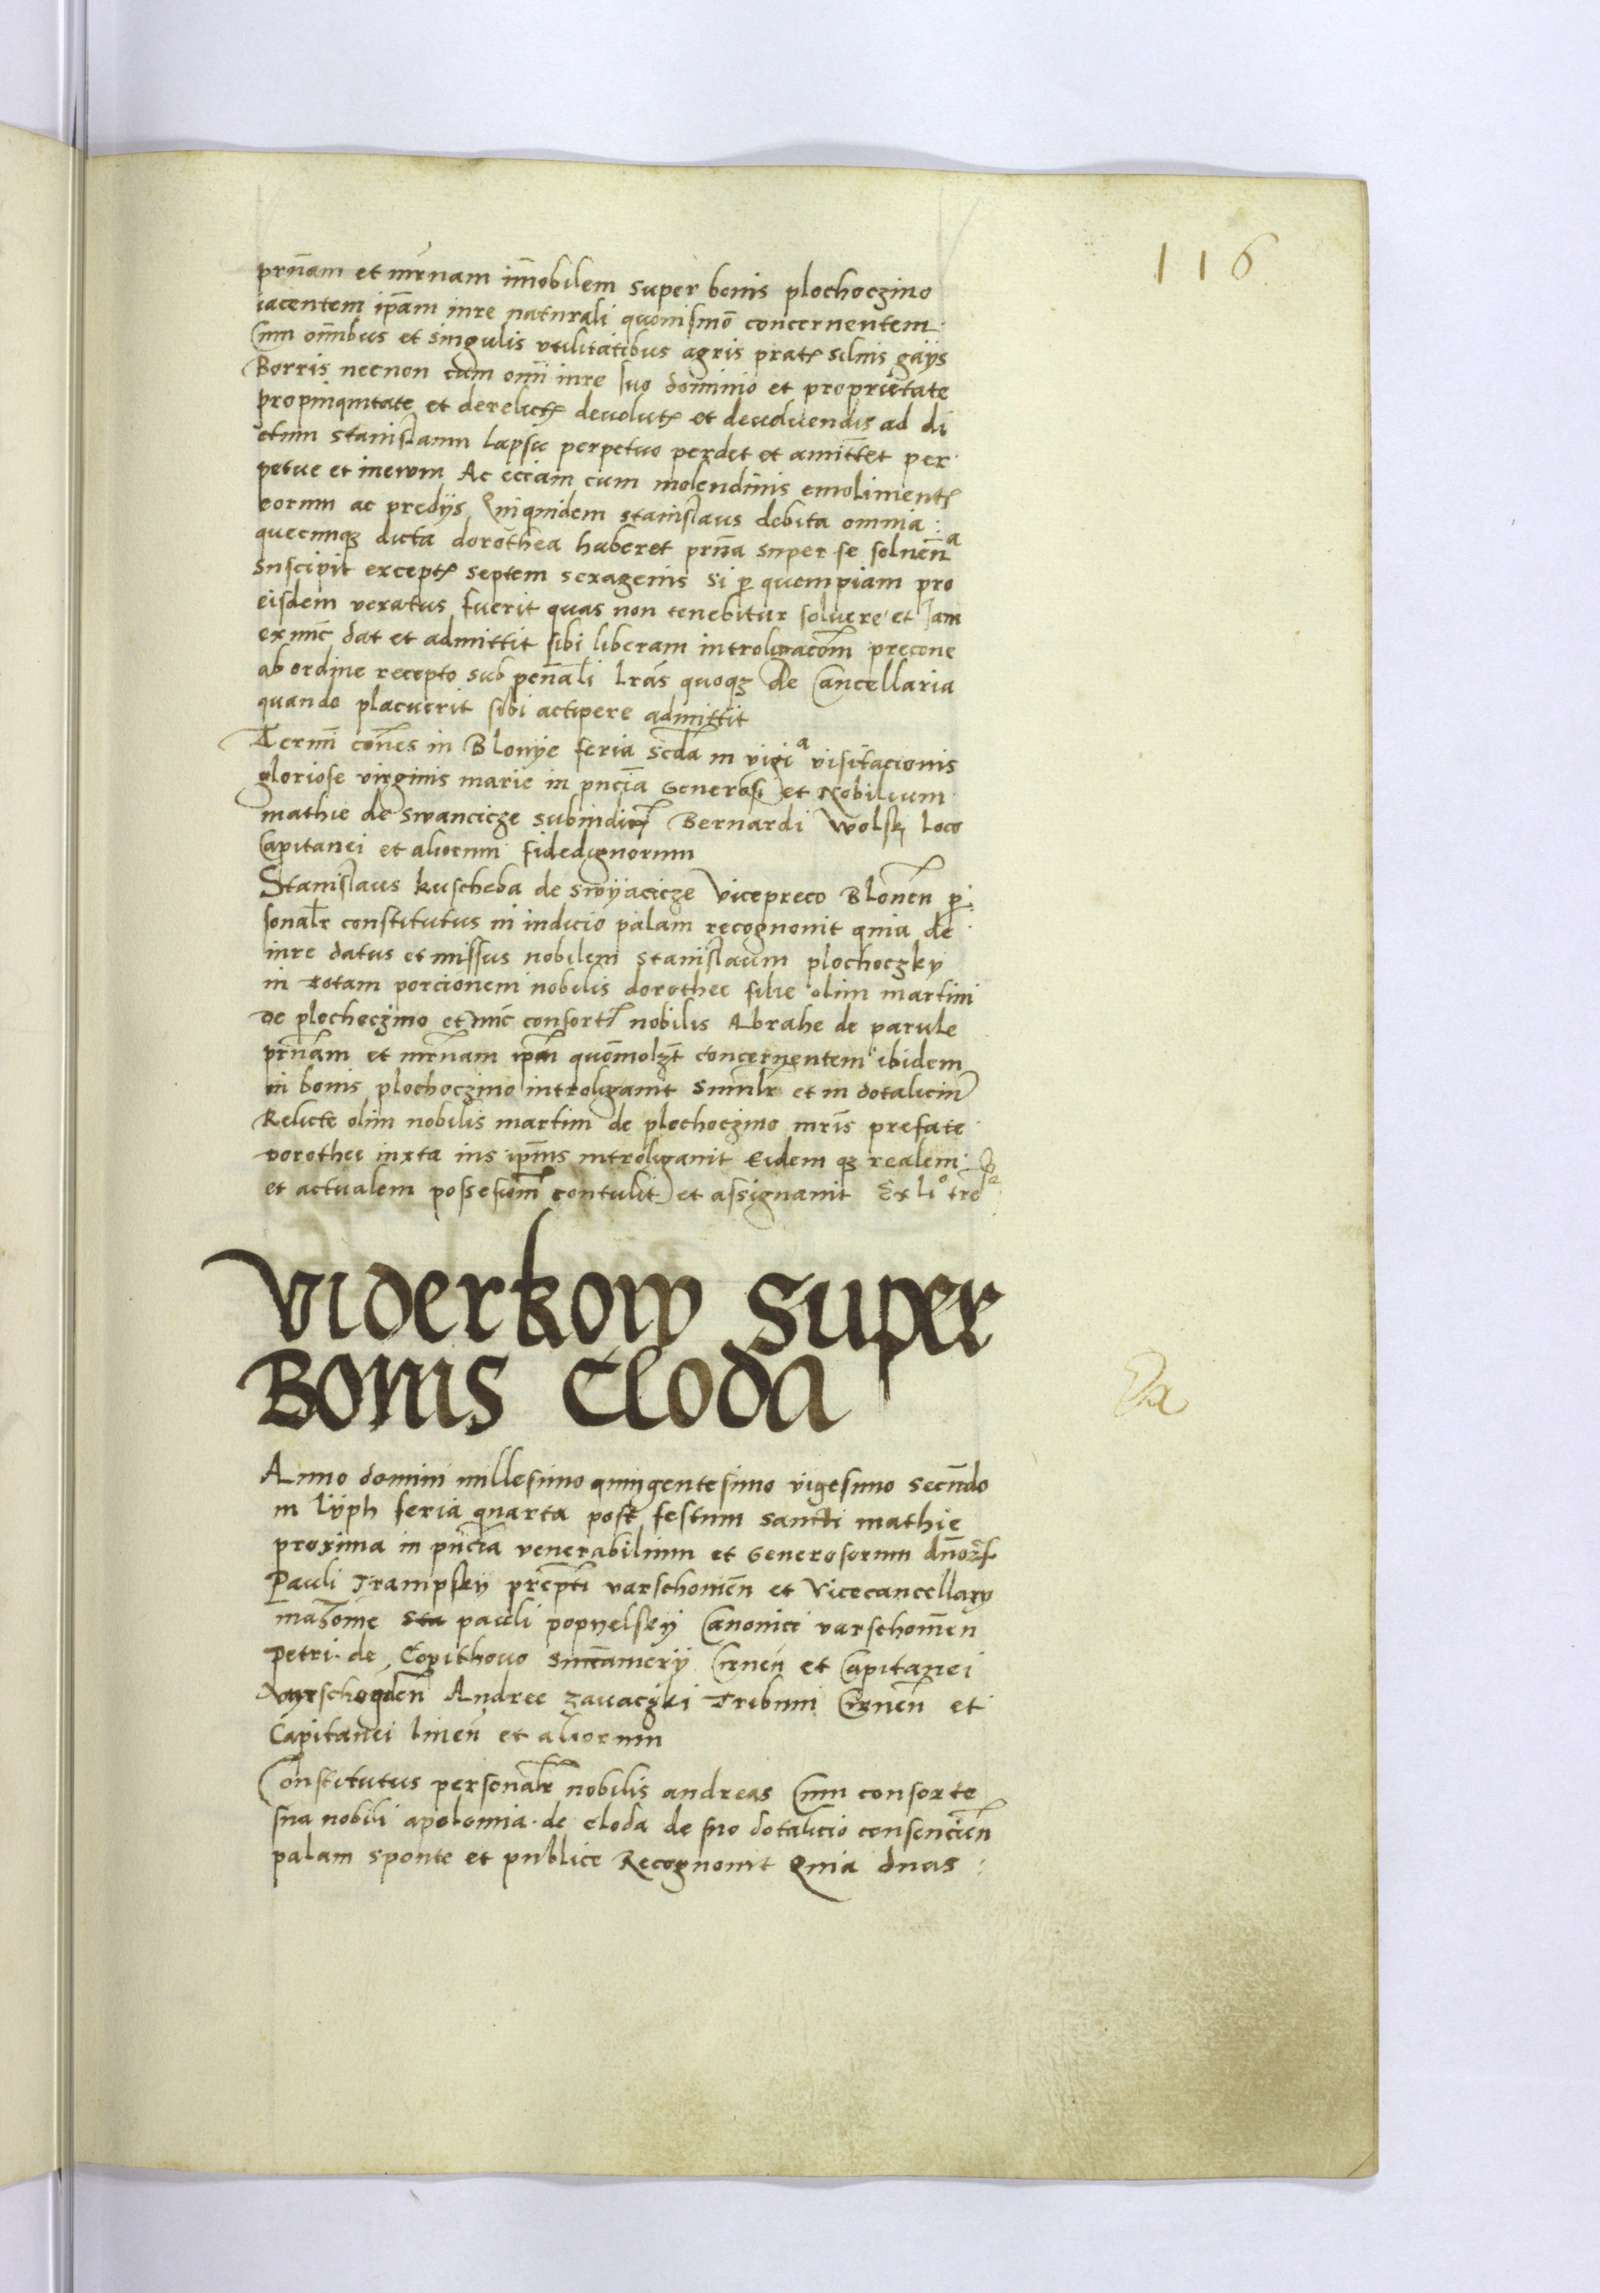 116
prnam et mrnam imobilem super bonis plochoczino
iacentem ipam iure naturali quouismo concernentem
Cum omibus et singulis vtilitatibus agris prat siluis gays
Borris necnon cum omi iure suo dominio et proprietate
propinquitate et derelict deuolut et deuoluendis ad di
ctum stanislaum lapsu perpetuo perdet et amittet per
petue et ineuum Ac eciam cum molendinis emoliment
eorum ac predijs Quiquidem stanislaus debita omnia
quecunqz dicta dorothea haberet prna super se soluena
suscipit except septem sexagenis si p quempiam pro
eisdem vexatus fuerit quas non tenebitur soluere et Jam
exnuc dat et admittit sibi liberam introligacom precone
ab ordine recepto sub penali lras quoqz de Cancellaria
quando placuerit sibi accipere admittit
Termi cones in Blonye feria scda in vigia visitacionis
gloriose virginis marie in pncia Generosi et Nobilium
mathie de swancicze subiudic Bernardi Wolsk loco
Capitanei et aliorum fidedignorum
Stanislaus kuscheba de swyacicze Vicepreco Blonen p
sonalr constitutus in iudicio palam recognouit quia de
iure datus et missus nobilem stanislaum plochoczky
in totam porcionem nobilis dorothee filie olim martini
de plochoczino et nuc consort nobilis Abrahe de parule
prnam et mrnam ipam quomolzt concernentem ibidem
in bonis plochoczino introligauit similr et in dotalicium
Relicte olim nobilis martini de plochoczino mris prefate
dorothee iuxta ius ipius introligauit Eidem qz realem
et actualem possesiom contulit et assignauit Ex lio tre
Viderkow super
Bonis Cloda
Da
Anno domini millesimo quingentesimo vigesimo secundo
in lyph feria quarta post festum sancti mathie
proxima in pncia venerabilium et Generosorum dnoz
Pauli Trampsky prepti varschouien et Vicecancellary
mazouie sta pauli popyelsky Canonici varschouien
Petri de Copithouo succamerij Cirnen et Capitanei
varschouien Andree zauaczki Tribuni Cirnen et
Capitanei liuen et aliorum
Constitutus personalr nobilis andreas Cum consorte
sua nobili apolonia de cloda de suo dotalicio consencien
palam sponte et publice Recognouit Quia duas